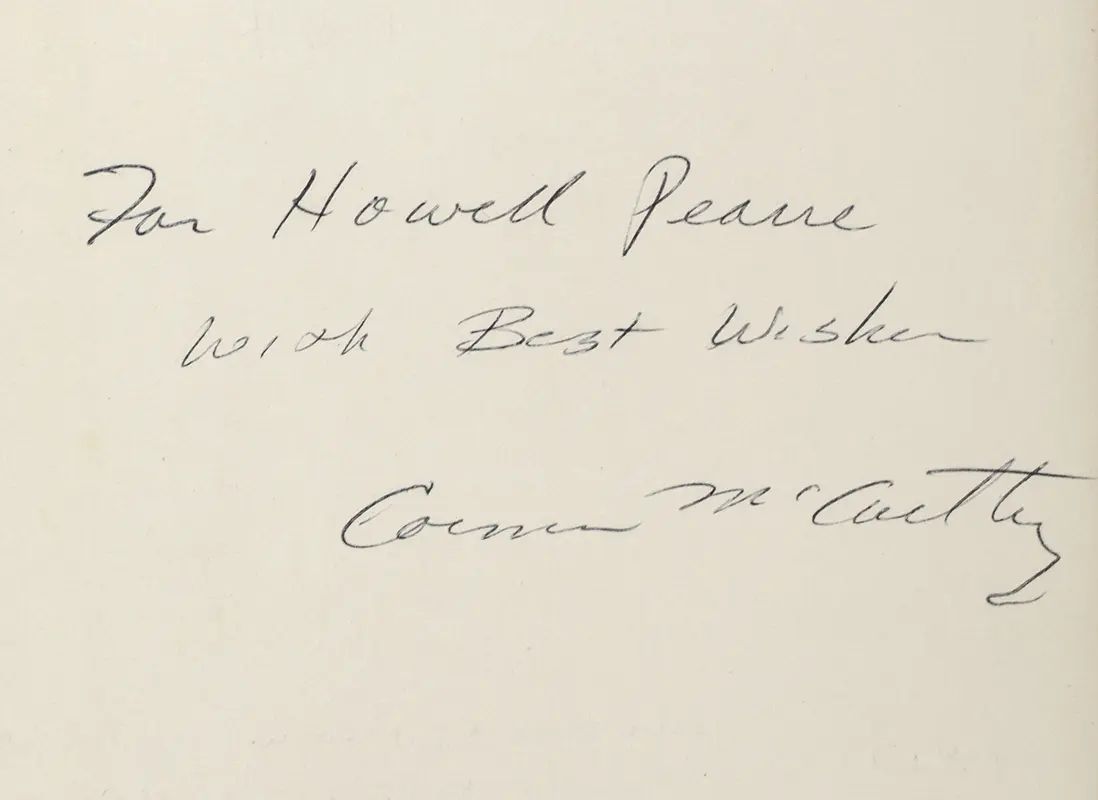 For Howell Pearre
With Best Wishes
Cormac McCarthy